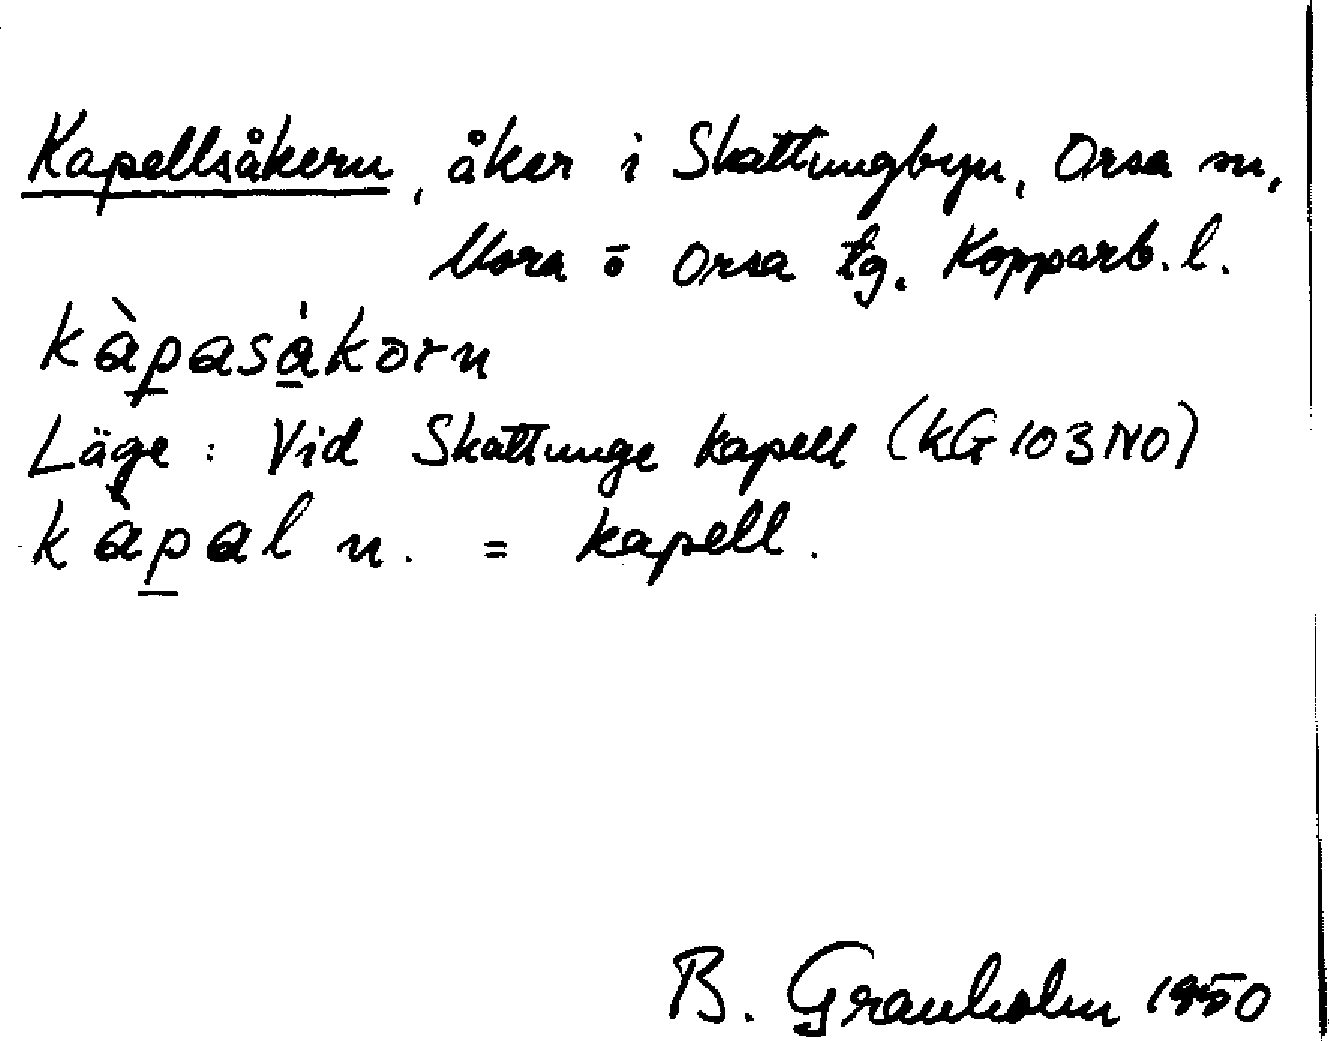 Kapellsåkern, åker i Skattungbyn, Orsa sn,
Mora o Orsa tg. Kopparb. l.
kàpasákorn
Läge: Vid Skattunge kapell (KG 103 NO)
kàpal n. = kapell.
B. Granholm 1950